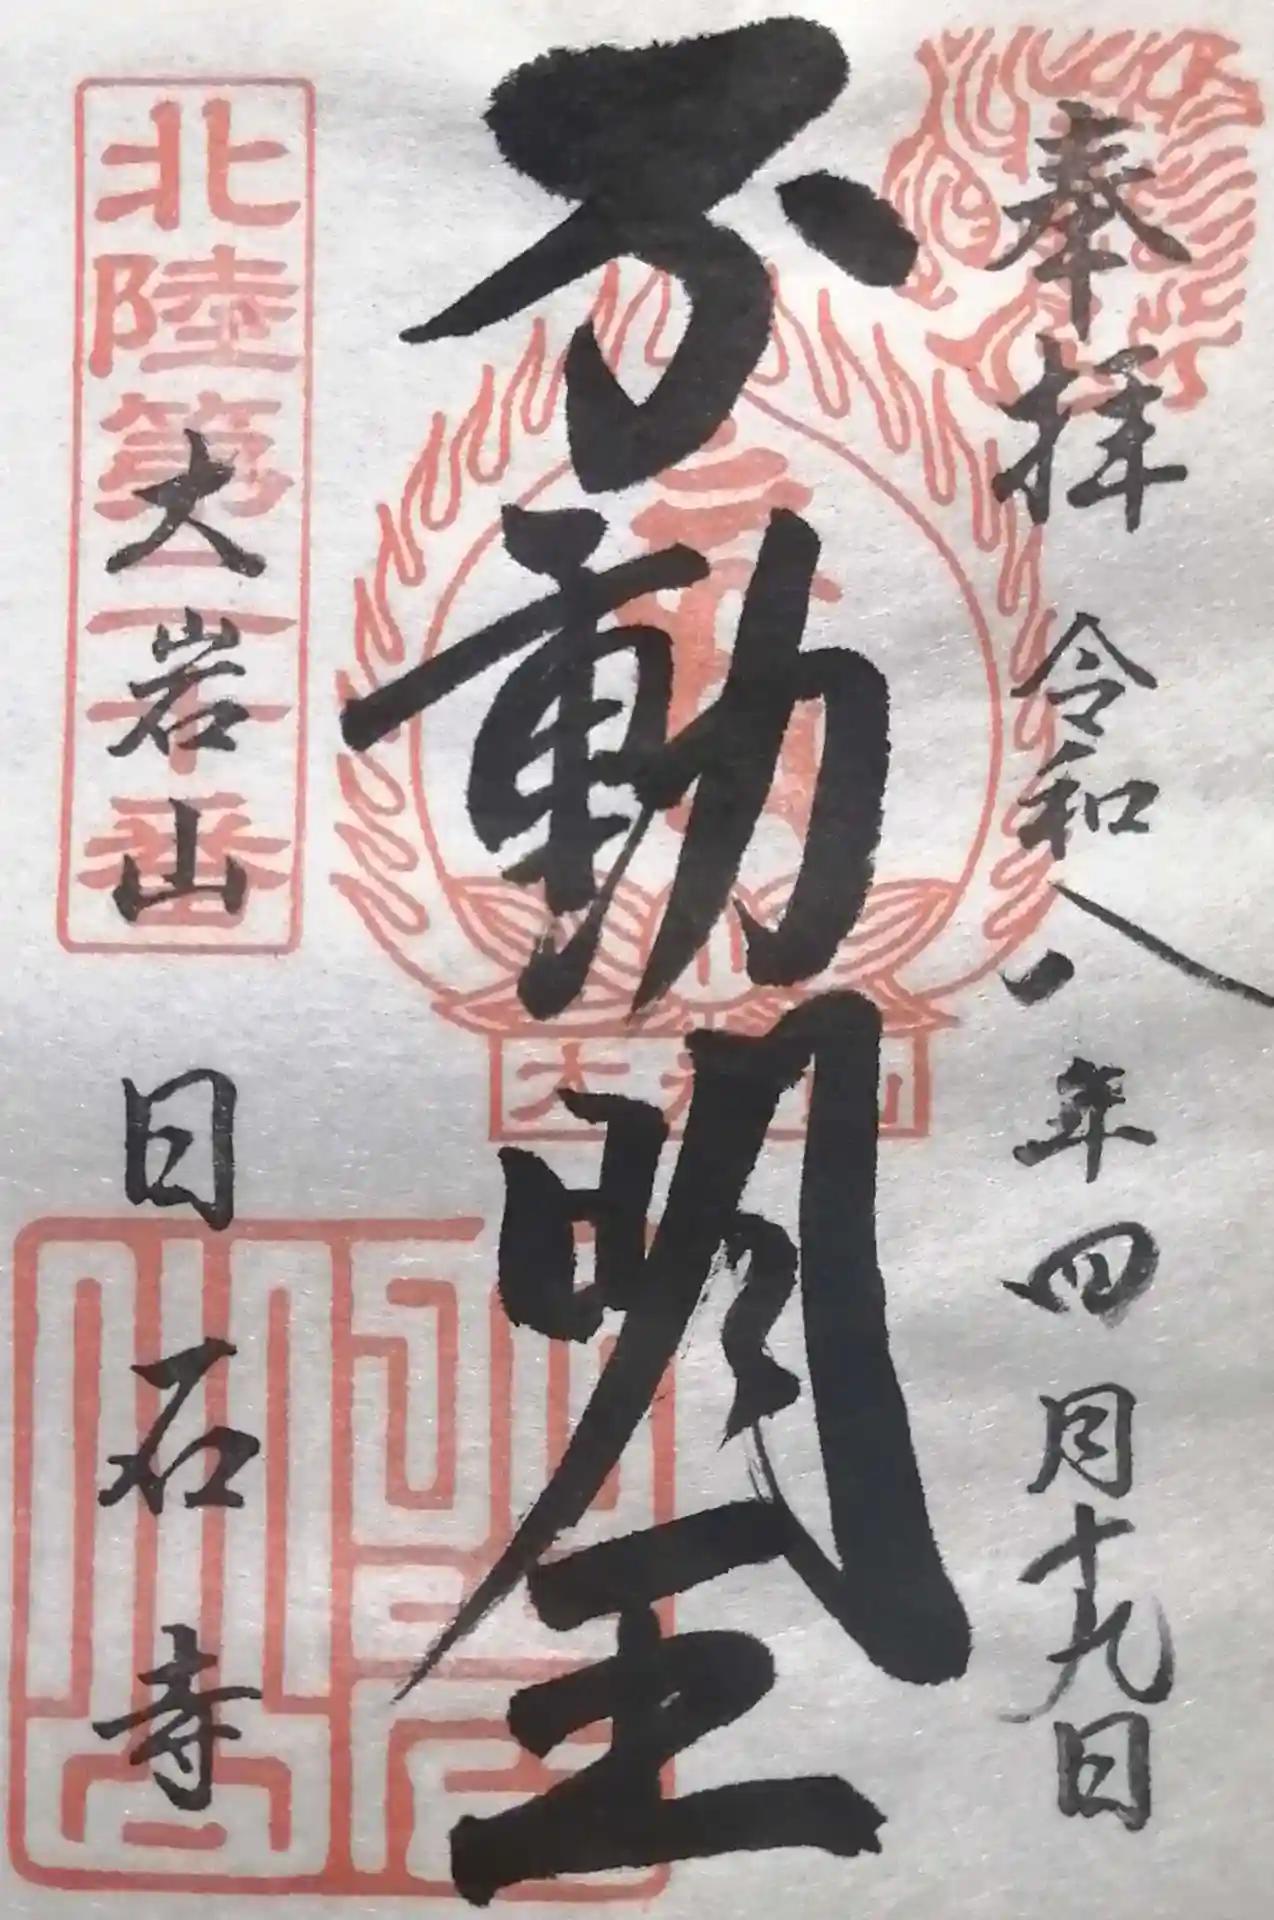 奉拝 令和八年四月十九日
不動明王
北陸第二十番
大岩山 日石寺
大岩山